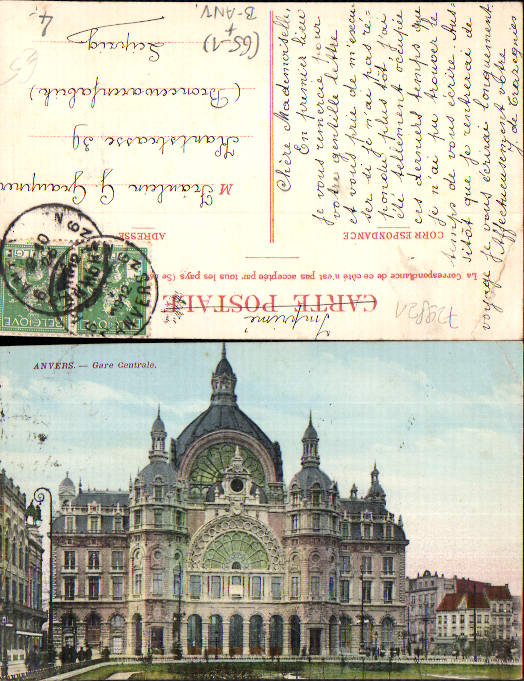 CARTE POSTALE
Imprimé
La Correspondance de ce côté n'est pas acceptée par tous les pays (Se
CORRESPONDANCE
ADRESSE
Chère Mademoiselle,
En premier lieu
je vous remercie pour
votre gentille lettre
et vous prie de m'excu
ser si je n'ai pas ré-
pondu plus tôt, j'ai
été tellement occupée
ces derniers temps que
je n'ai pu trouver le
temps de vous écrire. Aus-
sitôt que je rentrerai de
voyage je vous écrirai longuement.
Affectueusement votre
M
Fräulein G.
Kantstrasse 39
(Broncewarenfabrik)
Leipzig
(65-1)
B-ANV.
4.
BELGIQUE
BELGIQUE
ANVERS
ANVERS. — Gare Centrale.